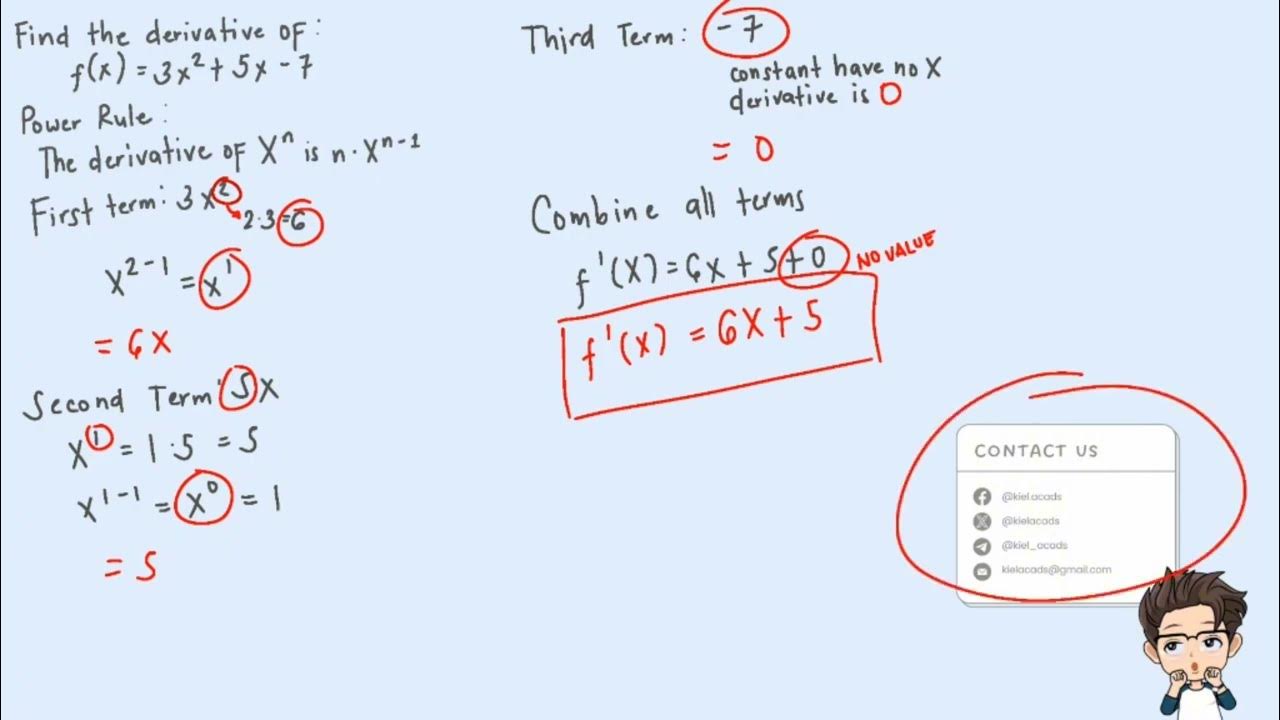 Find the derivative of:
f(x) = 3x² + 5x - 7
Power Rule:
The derivative of Xⁿ is n · Xⁿ⁻¹
First term: 3x²
2·3 = 6
X²⁻¹ = x¹
= 6X
Second Term: 5X
X¹ = 1·5 = 5
X¹⁻¹ = X⁰ = 1
= 5
Third Term: -7
constant have no X
derivative is 0
= 0
Combine all terms
f'(X) = 6x + 5 + 0 NO VALUE
f'(X) = 6X + 5
CONTACT US
@kiel.acads
@kielacads
@kiel_acads
kielacads@gmail.com